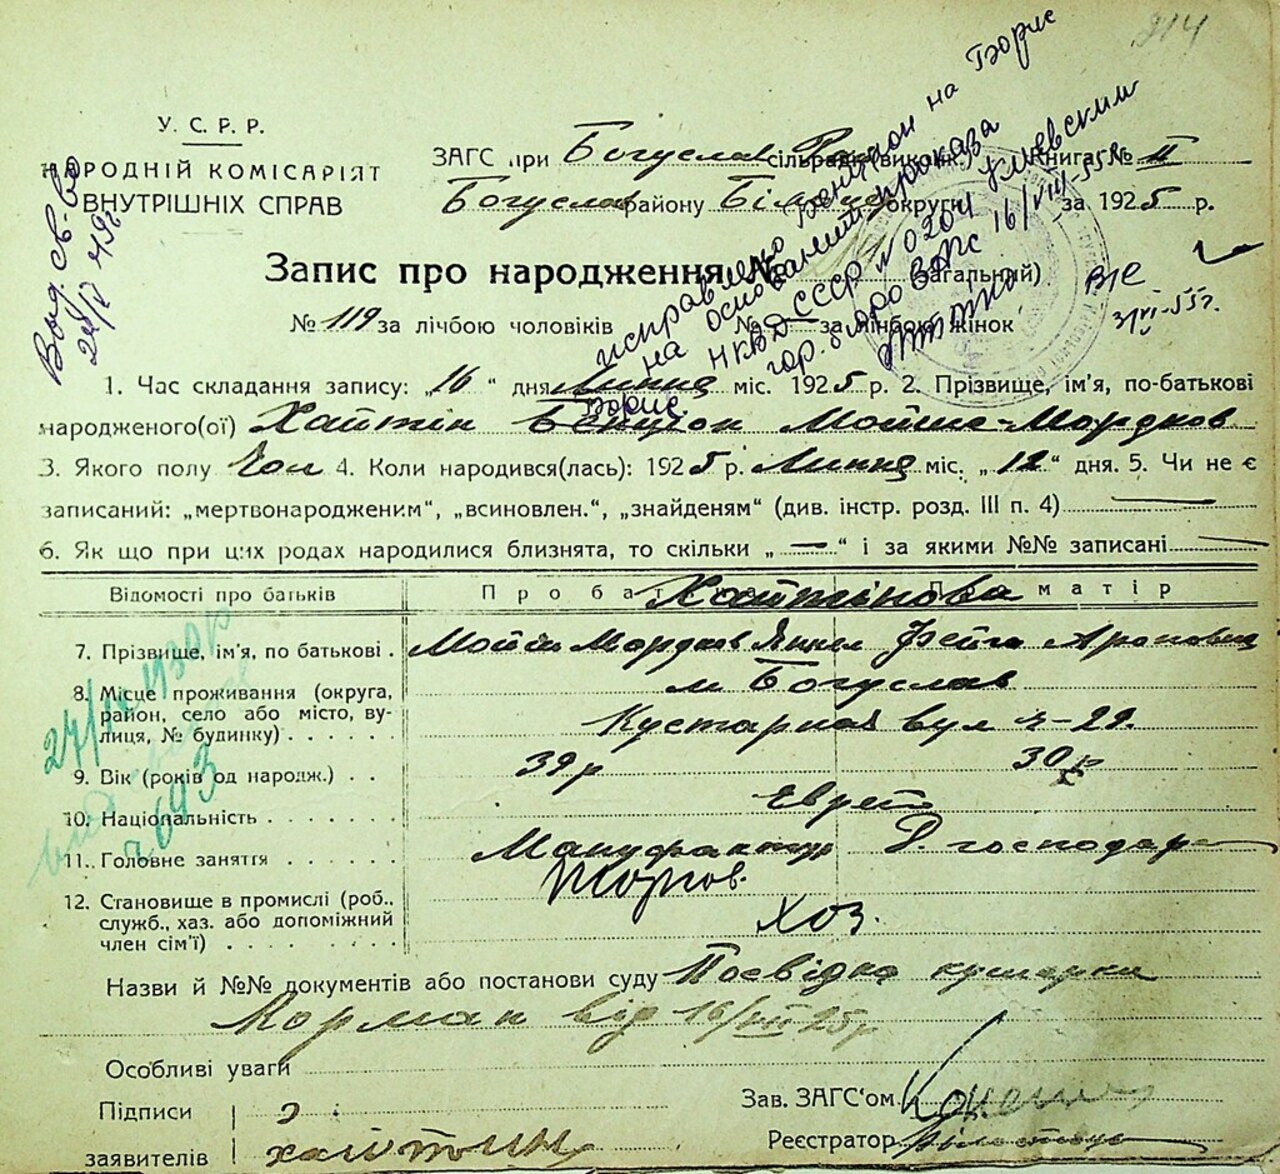 314
У. С. Р. Р.
НАРОДНІЙ КОМІСАРІЯТ
ВНУТРІШНІХ СПРАВ
ЗАГС при Богуслав сільраді(викон. Книга № II
Богуслав району Білоц округи за 1925 р.
Запис про народження №
загальний)
№ 119 за лічбою чоловіків № — за лічбою жінок
Выд. св-во
24/V 49г
исправлено Бенцион на Борис
на основании приказа
НКВД СССР № 0204 Киевским
гор. бюро ЗАГС 16/VIII-55г
31/VI-55г.
1. Час складання запису: „16“ дня Липня міс. 1925 р. 2. Прізвище, ім'я, по-батькові
Борис.
народженого(ої) Хайтін Бенцион Мойше-Мордков
3. Якого полу Чол 4. Коли народився(лась): 1925 р. Липня міс. „12“ дня. 5. Чи не є
записаний: „мертвонародженим“, „всиновлен.“, „знайденям“ (див. інстр. розд. III п. 4) —
6. Як що при цих родах народилися близнята, то скільки „—“ і за якими №№ записані —
Відомості про батьків Про батька Про матір
Хайтінова
7. Прізвище, ім'я, по батькові . Мойше Мордков Фейга Ароновна
8. Місце проживання (округа, м Богуслав
район, село або місто, ву- Кустарна вул ч-29.
лиця, № будинку) . . . . . .
9. Вік (років од народж.) . . 39р 30р
10. Національність . . . . . . . Евреї
11. Головне заняття . . . . . . Мануфактур Д. господар
торгов.
12. Становище в промислі (роб., хоз.
служб., хаз. або допоміжний
член сім'ї) . . . . . . . .
693
Назви й №№ документів або постанови суду Посвідка
від 16/VII 25р
Особливі уваги
Підписи
заявителів Хайтин
Зав. ЗАГС'ом
Реєстратор